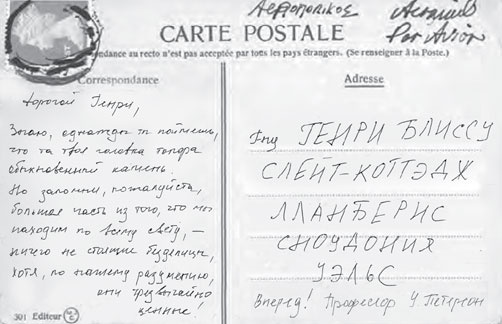 Αεροπορικός
Aeramails
Par Avion
CARTE POSTALE
ndance au recto n'est pas acceptée par tous les pays étrangers. (Se renseigner à la Poste.)
Correspondance
Дорогой Генри,
Знаю, однажды ты поймешь,
что та твоя головка топора
обыкновенный камень.
Но запомни, пожалуйста,
большая часть из того, что мы
находим по всему свету, –
ничего не стоящие безделицы,
хотя, по нашему разумению,
они чрезвычайно
ценные!
301 Editeur
Adresse
ГЕНРИ БЛИССУ
СЛЕЙТ-КОТТЭДЖ
ЛЛАНБЕРИС
СНОУДОНИЯ
УЭЛЬС
Вперед! Профессор У. Петерсон